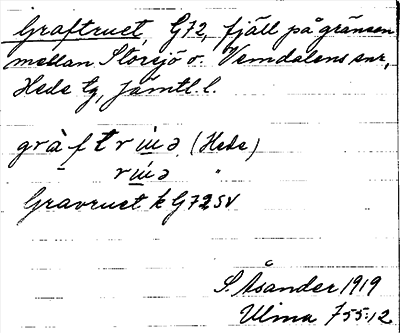 Graftruet, G72, fjäll på gränsen
mellan Storsjö o. Vemdalens snr,
Hede tg, Jämtl. l.
gràftrɯ́ə (Hede)
rɯ́ə "
Gravruet k G72SV
S. Åsander 1919
Ulma 755:12